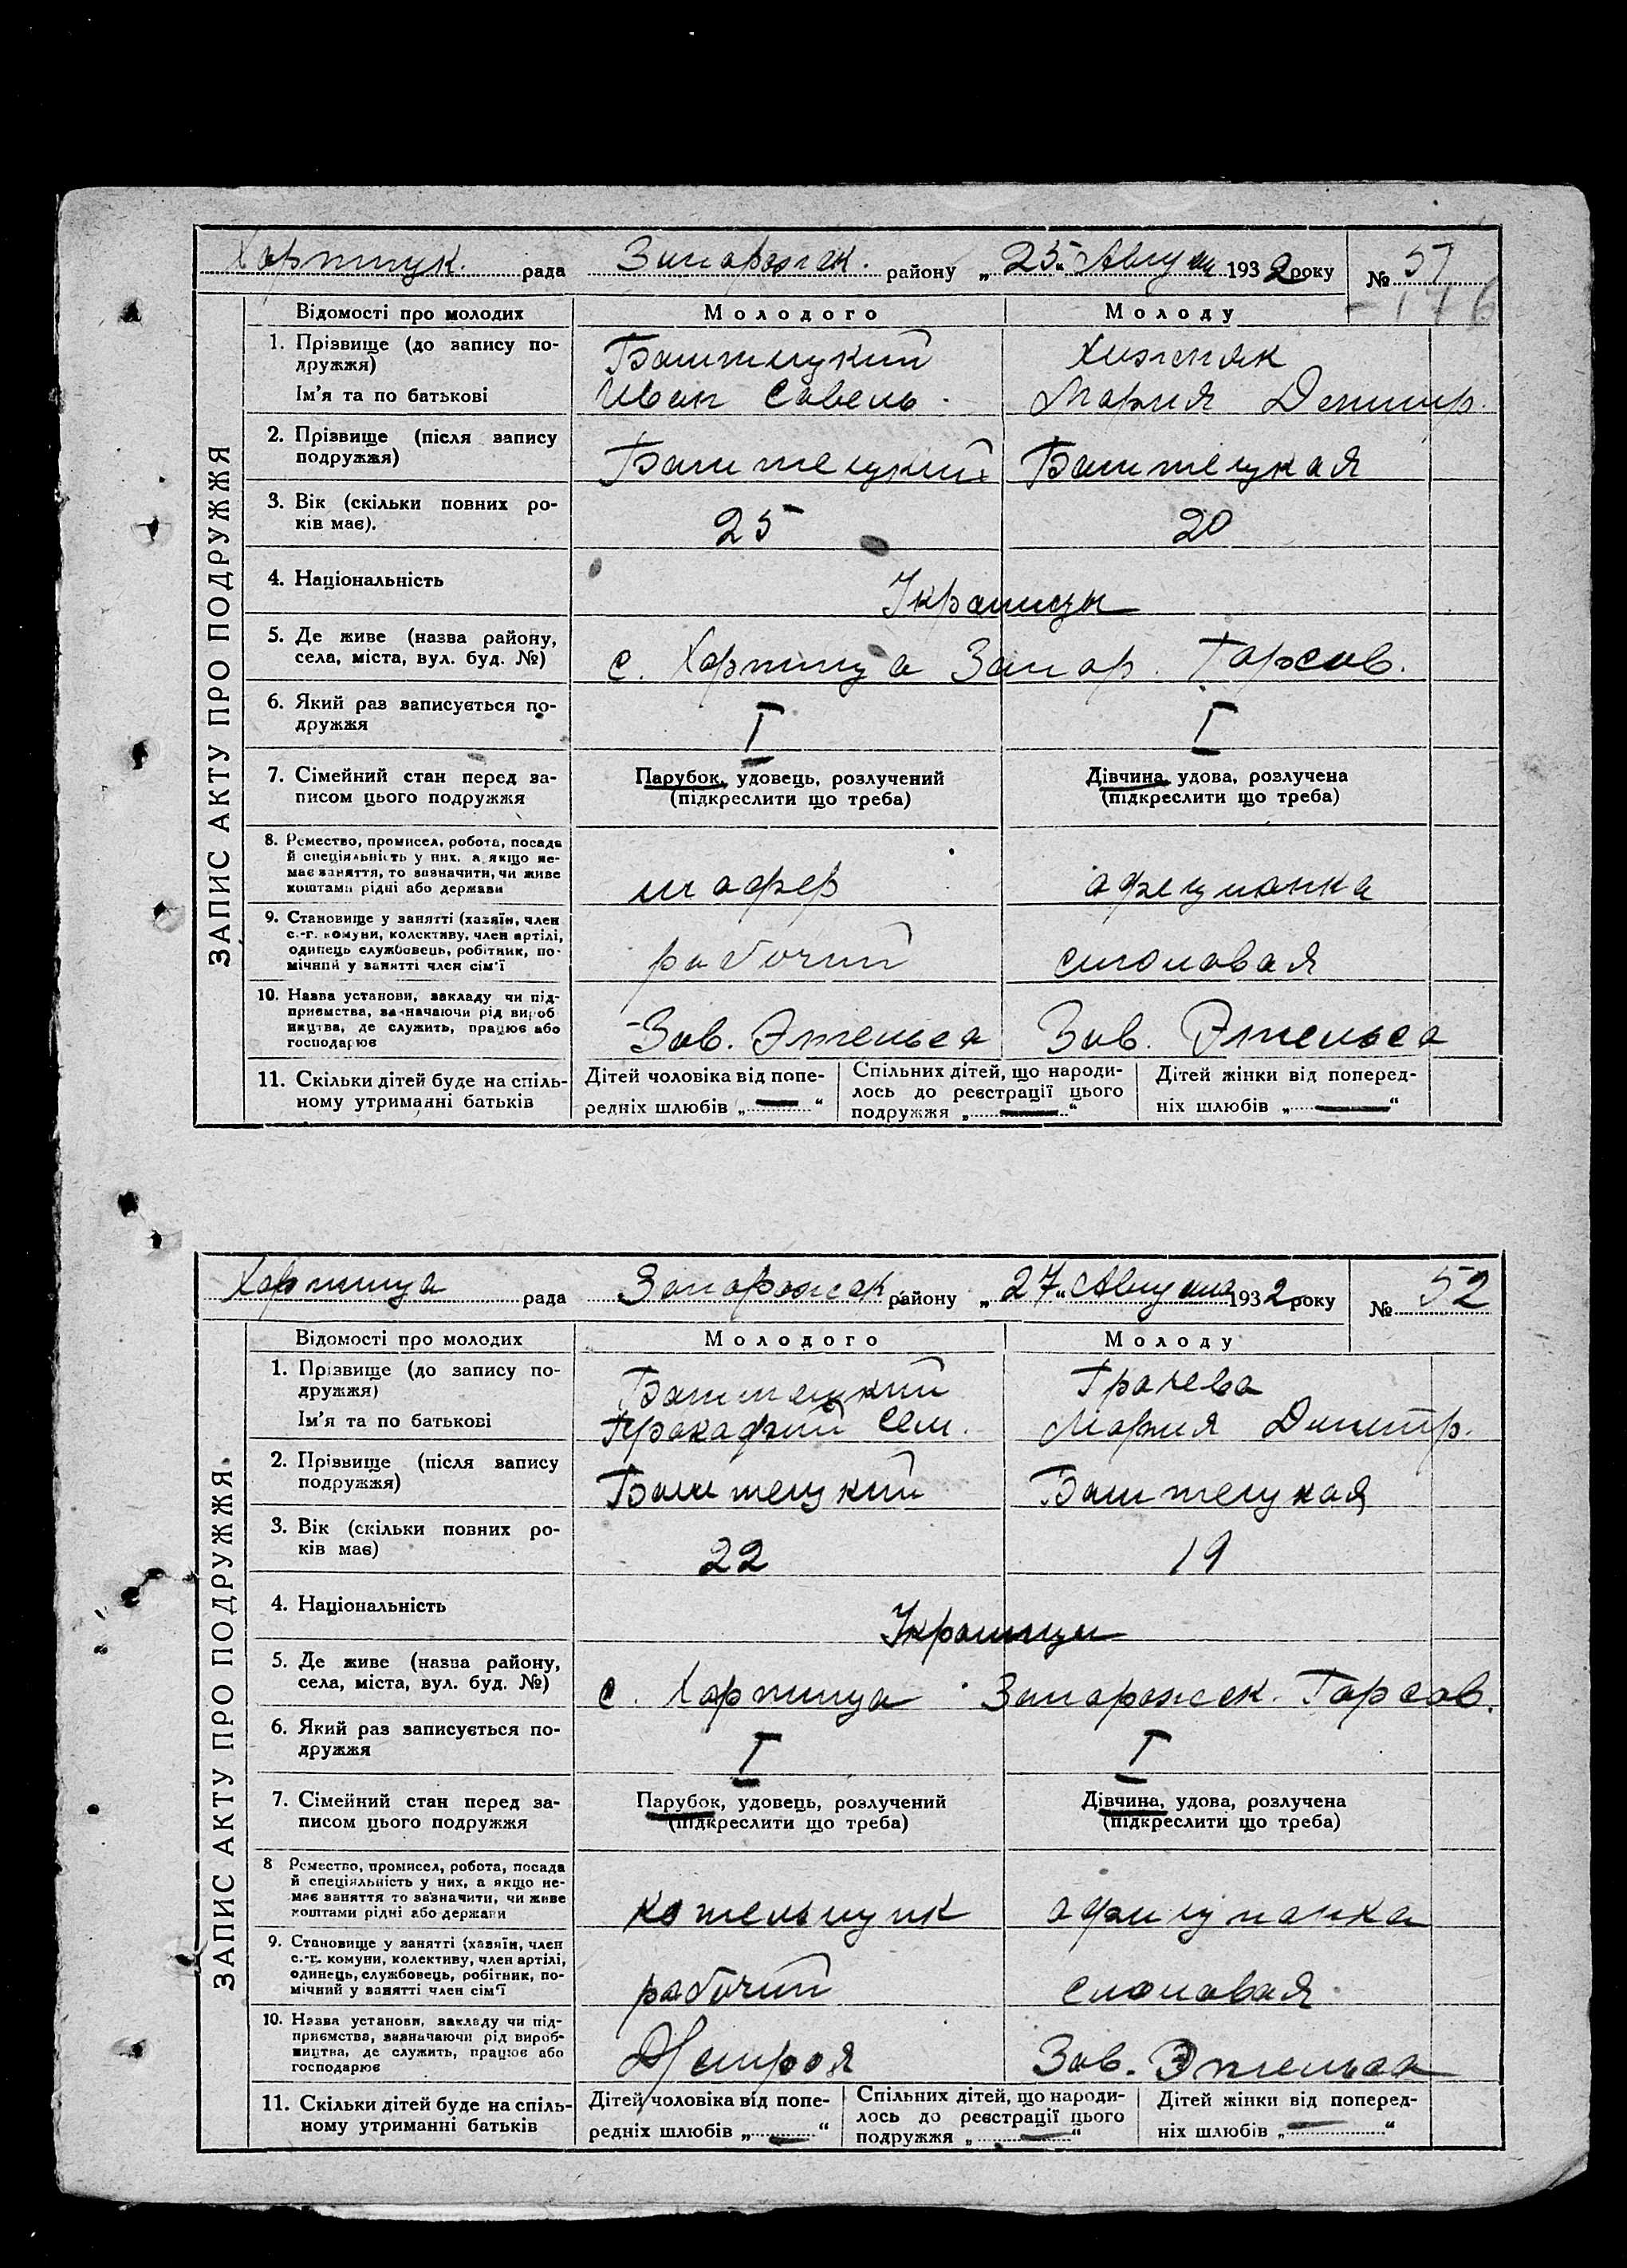 Хортицк. рада Запорожск. району „25“ Августа 1932 року № 51
176
Відомості про молодих Молодого Молоду
1. Прізвище (до запису по-
дружжя) Баштицкий Хижняк
Ім'я та по батькові Иван Савель. Мария Дмитр.
2. Прізвище (після запису
подружжя) Баштецкий Баштецкая
3. Вік (скільки повних ро-
ків має). 25 20
4. Національність Украинцы
5. Де живе (назва району,
села, міста, вул. буд. №) с. Хортица Запор. Горсов.
6. Який раз записується по-
дружжя I I
7. Сімейний стан перед за-
писом цього подружжя
Парубок, удовець, розлучений
(підкреслити що треба)
Дівчина, удова, розлучена
(підкреслити що треба)
8. Ремество, промисел, робота, посада
й спеціяльність у них, а якщо не-
має заняття, то зазначити, чи живе
коштами рідні або держави
шофер официанка
9. Становище у занятті (хазяїн, член
с.-г. комуни, колективу, член артілі,
одинець службовець, робітник, по-
мічний у занятті член сім'ї
рабочий столовая
10. Назва установи, закладу чи під-
приємства, зазначаючи рід вироб
ництва, де служить, працює або
господарює
Зав. Энгельса Зав. Энгельса
11. Скільки дітей буде на спіль-
ному утриманні батьків
Дітей чоловіка від попе-
редніх шлюбів „—“
Спільних дітей, що народи-
лось до реєстрації цього
подружжя „—“
Дітей жінки від поперед-
ніх шлюбів „—“
ЗАПИС АКТУ ПРО ПОДРУЖЖЯ
Хортица рада Запорожск. району „27“ Августа 1932 року № 52
Відомості про молодих Молодого Молоду
1. Прізвище (до запису по-
дружжя) Баштецкий Грачева
Ім'я та по батькові Сем. Мария Димитр.
2. Прізвище (після запису
подружжя) Баштецкий Баштецкая
3. Вік (скільки повних ро-
ків має) 22 19
4. Національність Украинцы
5. Де живе (назва району,
села, міста, вул. буд. №) с. Хортица Запорожск. Горсов.
6. Який раз записується по-
дружжя I I
7. Сімейний стан перед за-
писом цього подружжя
Парубок, удовець, розлучений
(підкреслити що треба)
Дівчина, удова, розлучена
(підкреслити що треба)
8 Ремество, промисел, робота, посада
й спеціяльність у них, а якщо не-
має заняття то зазначити, чи живе
коштами рідні або держави
котельщик официанка
9. Становище у занятті (хазяїн, член
с.-г. комуни, колективу, член артілі,
одинець, службовець, робітник, по-
мічний у занятті член сім'ї
рабочий столовая
10. Назва установи, закладу чи під-
приємства, зазначаючи рід вироб-
ництва, де служить, працює або
господарює
Зав. Энгельса
11. Скільки дітей буде на спіль-
ному утриманні батьків
Дітей чоловіка від попе-
редніх шлюбів „—“
Спільних дітей, що народи-
лось до реєстрації цього
подружжя „—“
Дітей жінки від поперед-
ніх шлюбів „—“
ЗАПИС АКТУ ПРО ПОДРУЖЖЯ